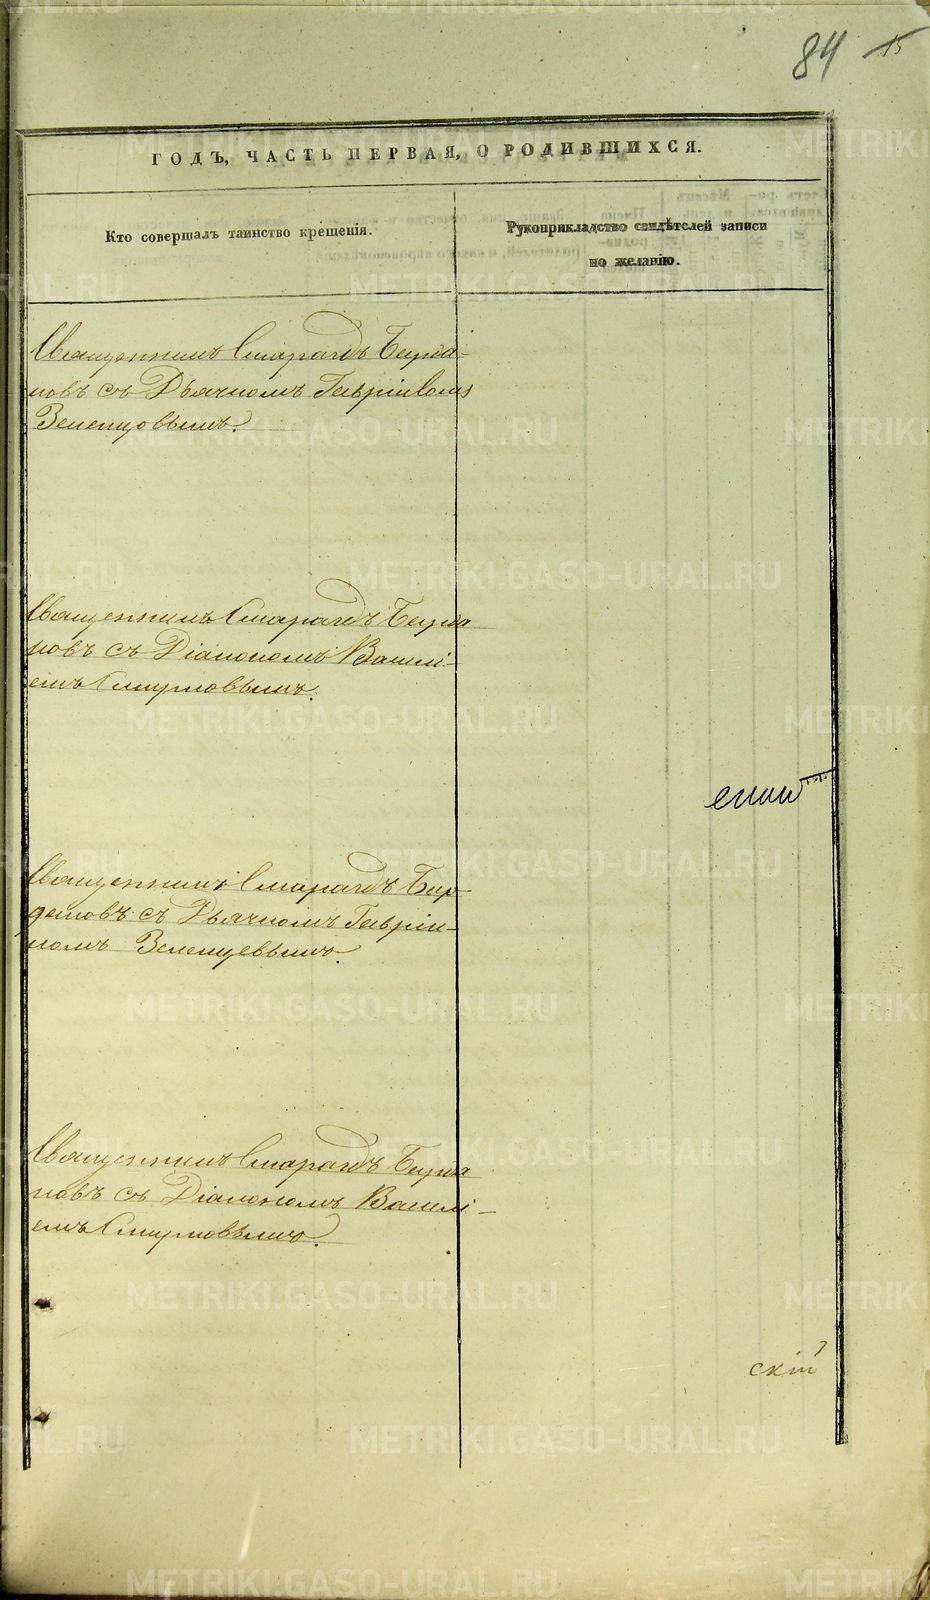 84 15
ГОДЪ, ЧАСТЬ ПЕРВАЯ, О РОДИВШИХСЯ.
Кто совершалъ таинство крещенія.
Рукоприкладство свидѣтелей записи
по желанію.
Священникъ Смарагдъ
новъ съ Дьячкомъ Гавріиломъ
Зеленцовымъ.
Священникъ Смарагдъ
новъ съ Діакономъ Василі-
емъ Смирновымъ.
Священникъ Смарагдъ
съ Дьячкомъ Гавріи-
ломъ Зеленцевымъ.
Священникъ Смарагдъ
новъ съ Діакономъ Василі-
емъ Смирновымъ.
скій
METRIKI.GASO-URAL.RU